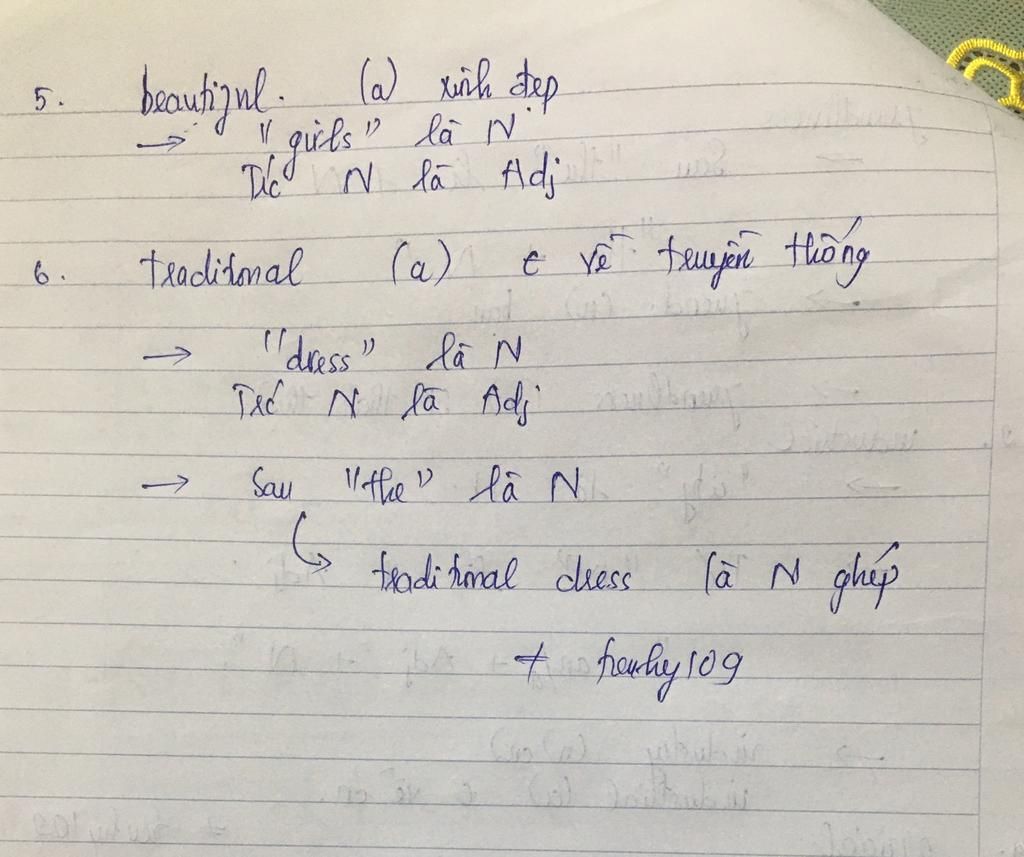 5. beautiful. (a) xinh đẹp
→ "girls" là N
Trc N là Adj
6. traditional (a) t về truyền thống
→ "dress" là N
Trc N là Adj
→ Sau "the" là N
traditional dress là N ghép